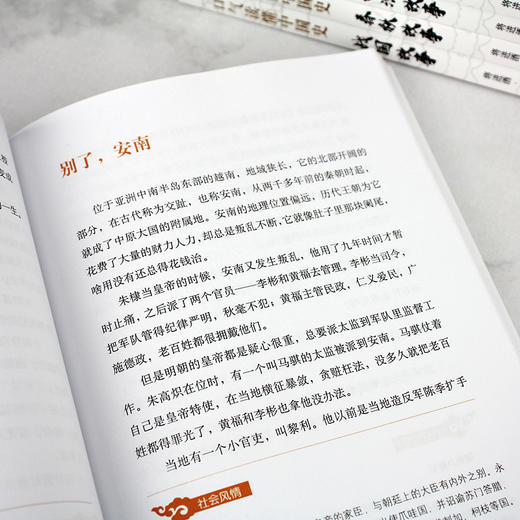 一口气读懂中国史
春秋故事
战国故事
别了，安南
位于亚洲中南半岛东部的越南，地域狭长，它的北部开阔的
部分，在古代称为交趾，也称安南，从两千多年前的秦朝时起，
就成了中原大国的附属地。安南的地理位置偏远，历代王朝为它
花费了大量的财力人力，却总是叛乱不断，它就像肚子里那块阑尾，
啥用没有还总得花钱治。
朱棣当皇帝的时候，安南又发生叛乱，他用了九年时间才暂
时止痛，之后派了两个官员——李彬和黄福去管理。李彬当司令，
把军队管得纪律严明，秋毫不犯；黄福主管民政，仁义爱民，广
施德政，老百姓都很拥戴他们。
但是明朝的皇帝都是疑心很重，总要派太监到军队里监督工
作。朱高炽在位时，有一个叫马骐的太监被派到安南。马骐仗着
自己是皇帝特使，在当地横征暴敛，贪赃枉法，没多久就把老百
姓都得罪光了，黄福和李彬也拿他没办法。
当地有一个小官吏，叫黎利。他以前是当地造反军陈季扩手
社会风情
帝的家臣，与朝廷上的大臣有内外之别，永
出使爪哇国，并诏谕苏门答腊、
制加、柯枝等国，